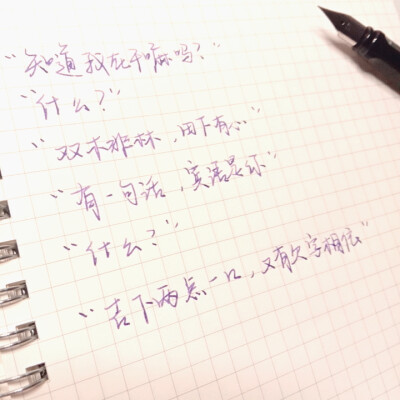 “知道我在干嘛吗？”
“什么？”
“双木非林，田下有心”
“有一句话，宾语是你”
“什么？”
“吉下两点一口，又有欠字相依”